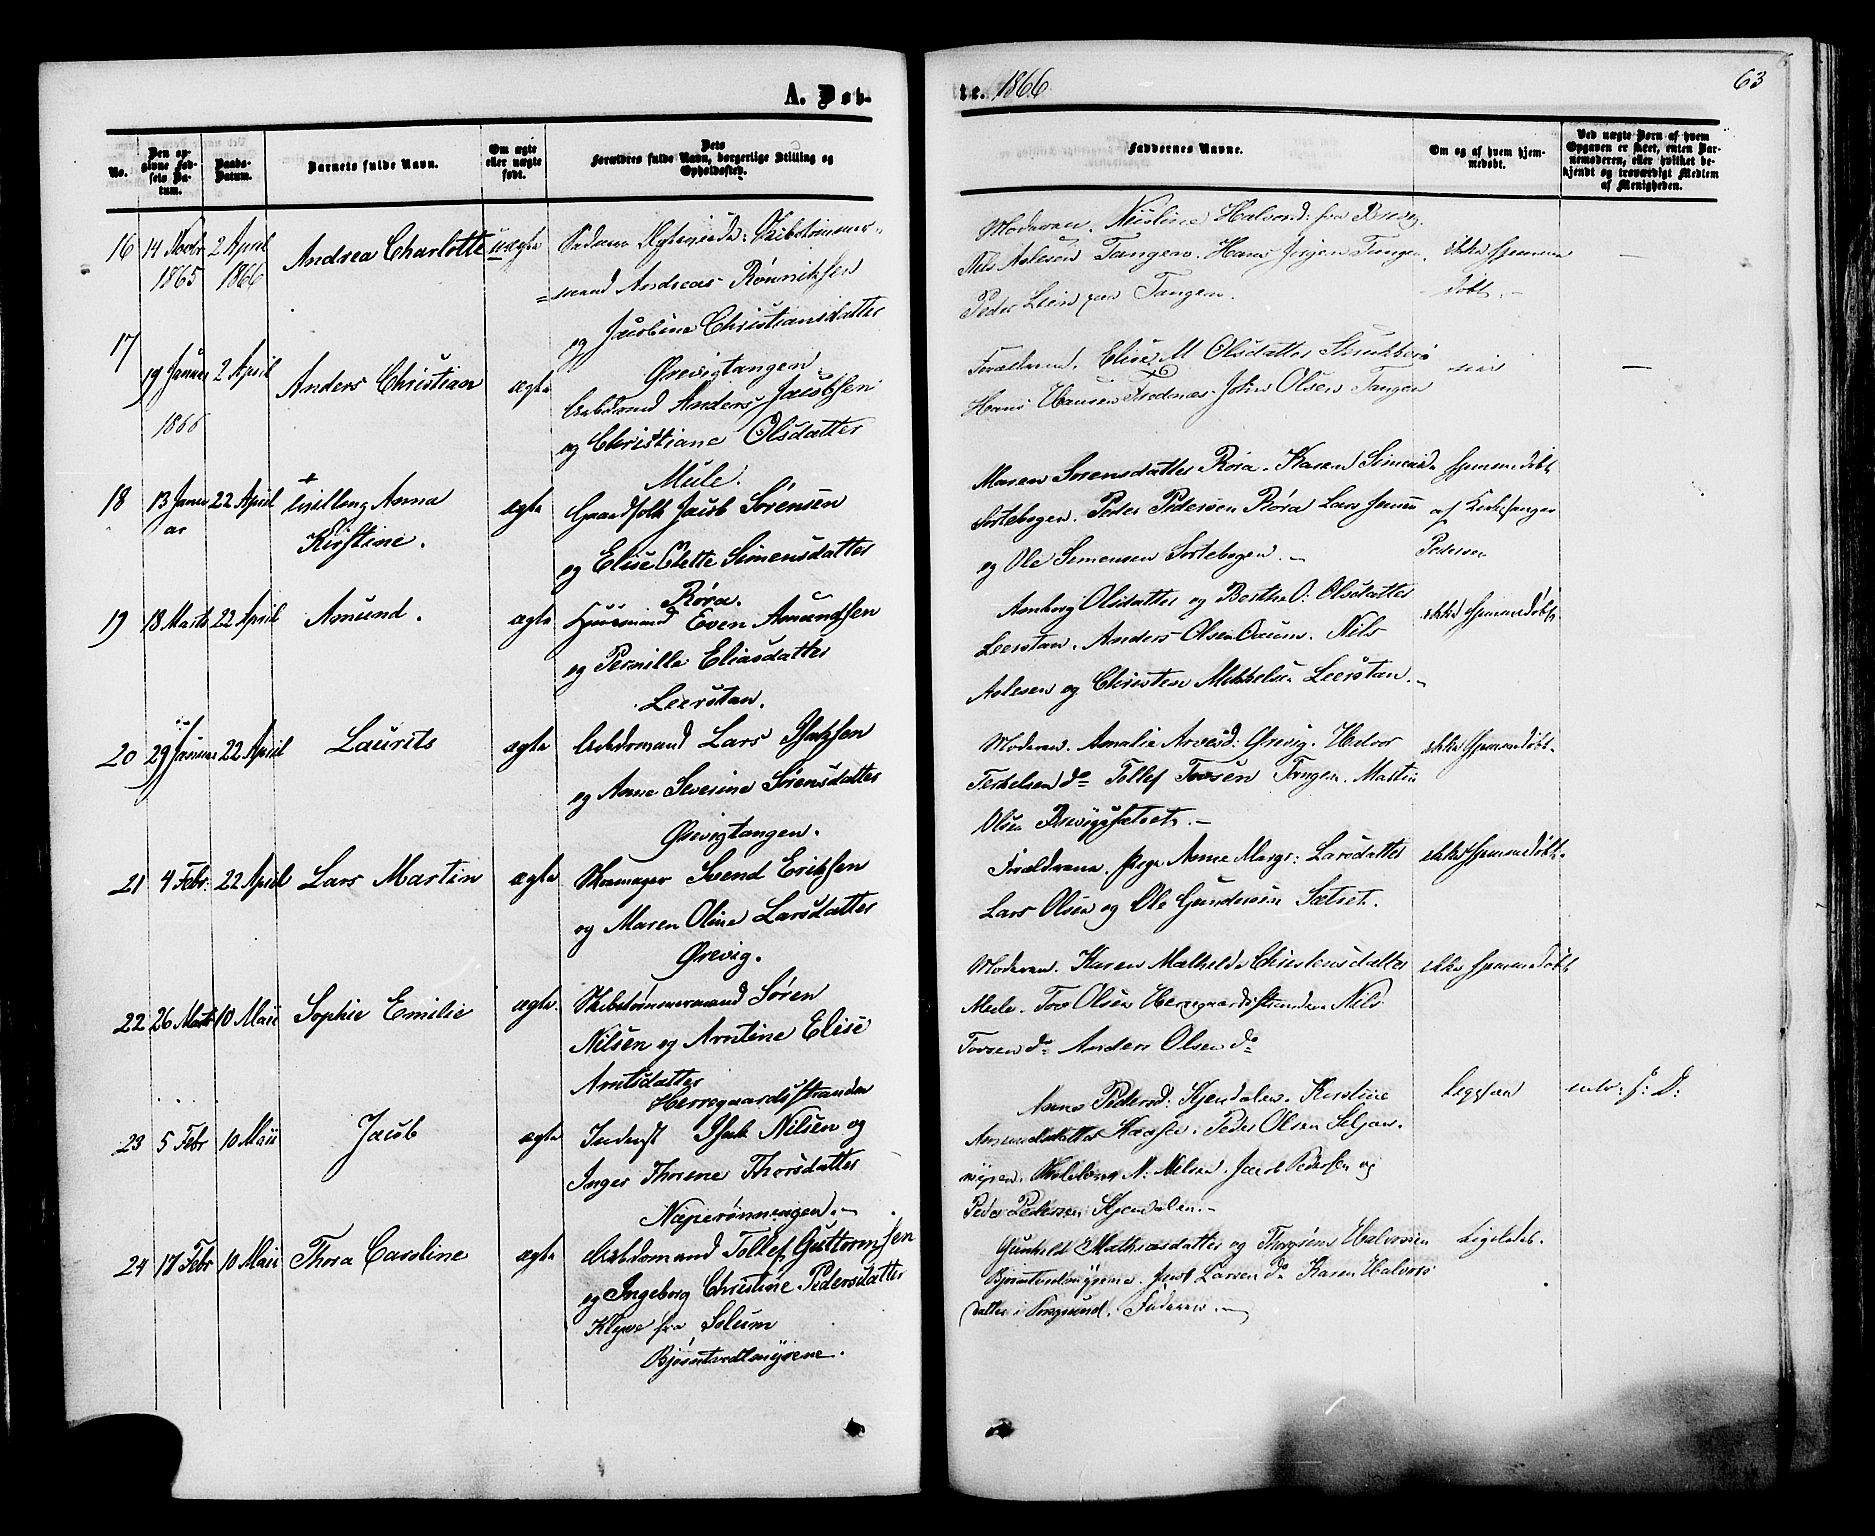 A. Døb-
te. 1866
63
No.
Den op-
givne Fød-
sels Da-
tum.
Daabs-
Datum.
Barnets fulde Navn.
Om ægte
eller uægte
født.
Dets
Forældres fulde Navn, borgerlige Stilling og
Opholdssted.
Faddernes Navne.
Om og af hvem hjem-
medøbt.
Ved uægte Børn af hvem
Opgaven er skeet, enten Bar-
nemoderen, eller hvilket be-
kjendt og troværdigt Medlem
af Menigheden.
16
14 Novbr
1865
2 April
1866
Andrea Charlotte
uægte
Skibstømmer-
=mand Andreas Rønniksen
og Jacobine Christiansdatter
Ørevigtangen
Moderen. Halvorsd: fra
Nils Aslesen Tangen. Hans Jørgen Tangen.
Peder Tangen.
ikke hjemme
døbt.-
—
17
19 Januar
1866
2 April
Anders Christian
ægte
Arbdsmd Anders Jacobsen
og Christiane Olsdatter
Mule.
Forældrene. Elise M Olsdatter
Hans Hansen John Olsen Tangen
—
18
13 Janu
ar
22 April
+
Anna
Kirstine.
ægte
Gaardfolk Jacob Sørensen
og Elise Mette Simensdatter
Røra.
Maren Sørensdatter Røra. Karen Simensd
Sortebogen. Peder Pedersen Røra Lars Jensen
og Ole Simensen Sortebogen.-
hjemmedøbt
af Kirkesanger
Pedersen
19
18 Marts
22 April
Amund.
ægte
Huusmand Even Amundsen
og Pernille Eliasdatter
Leerstan.
Olsdatter og Berthe O: Olsdatter
Leerstan. Anders Olsen Nils
Aslesen og Christen Mikkelsen Leerstan.-
ikke hjemmedøbt
20
29 Januar
22 April
Laurits
ægte
Arbdsmand Lars Isaksen
og Anne Severine Sørensdatter
Ørevigtangen.
Moderen. Amalie Ørevig. Halvor
Terkelsen do Tollef Tovsen Tangen. Martin
Olsen
ikke hjemmedøbt.
21
4 Febr.
22 April
Lars Martin
ægte
Skomager Svend Eriksen
og Maren Oline Larsdatter
Ørevig.
Forældrene. Pige Anne Margr: Larsdatter
Lars Olsen og Ole Gundersen Sætret.
ikke hjemmedøbt.
22
26 Marts
10 Maii
Sophie Emilie
ægte.
Skibstømmermand Søren
Nilsen og Arntine Elise
Arntsdatter
Herregaardsstranden
Moderen. Karen Mathilde Christensdatter
Mule. Tov Olsen Herregaardsstranden Nils
Tovsen do Anders Olsen do
ikke hjemmedøbt
23
5 Febr
10 Maii
Jacob
ægte
Inderst Isak Nilsen og
Inger Thorene Thorsdatter
Næperønningen.-
Anne Pedersd: Kjendalen. Kirstine
Amundsdatter Peder Olsen
N. Nilsen. Jacob Pedersen og
Peder Pedersen Kjendalen.-
24
17 Febr
10 Maii
Thora Caroline
ægte
Arbdsmand Tollef Guttormsen
og Ingeborg Christine Pedersdatter
Klyve fra Solum
Bjørntvedtmyrene.
Gunhild Mathiasdatter og Halvorsen
Bjørntvedtmyrene. Larsen do Karen Halvors-
datter i Porsgrund. Faderen.-
Ligeledes.